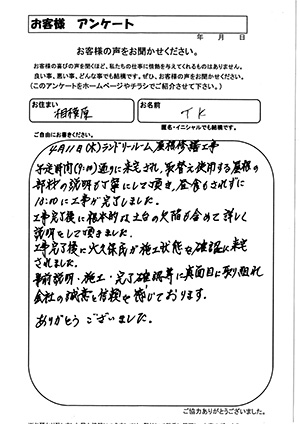 お客様 アンケート
年 月 日
お客様の声をお聞かせください。
お客様の喜びの声を聞くほど、私たちの仕事に情熱を与えてくれるものはありません。
良い事、悪い事、どんな事でも結構です。ぜひ、お客様の声をお聞かせください。
(このアンケートをホームページやチラシでご紹介させて下さい。)
お住まい
お名前
相模原
TK
匿名・イニシャルでも結構です。
ご自由にお書きください。
4月11日(水)ランドリールーム、屋根修繕工事
予定時間(9:00)通りに来宅され、取替え使用する屋根の
部材の説明も丁寧にして頂き、昼食もされずに
18:00に工事が完了しました。
工事完了後に根本的な土台の欠陥も含めて詳しく
説明をして頂きました。
工事完了後に大久保氏が施工状態を確認に来宅
されました。
事前説明・施工・完了確認等に真面目に取り組まれ
会社の誠意と信頼を感じております。
ありがとうございました。
ご協力ありがとうございました。